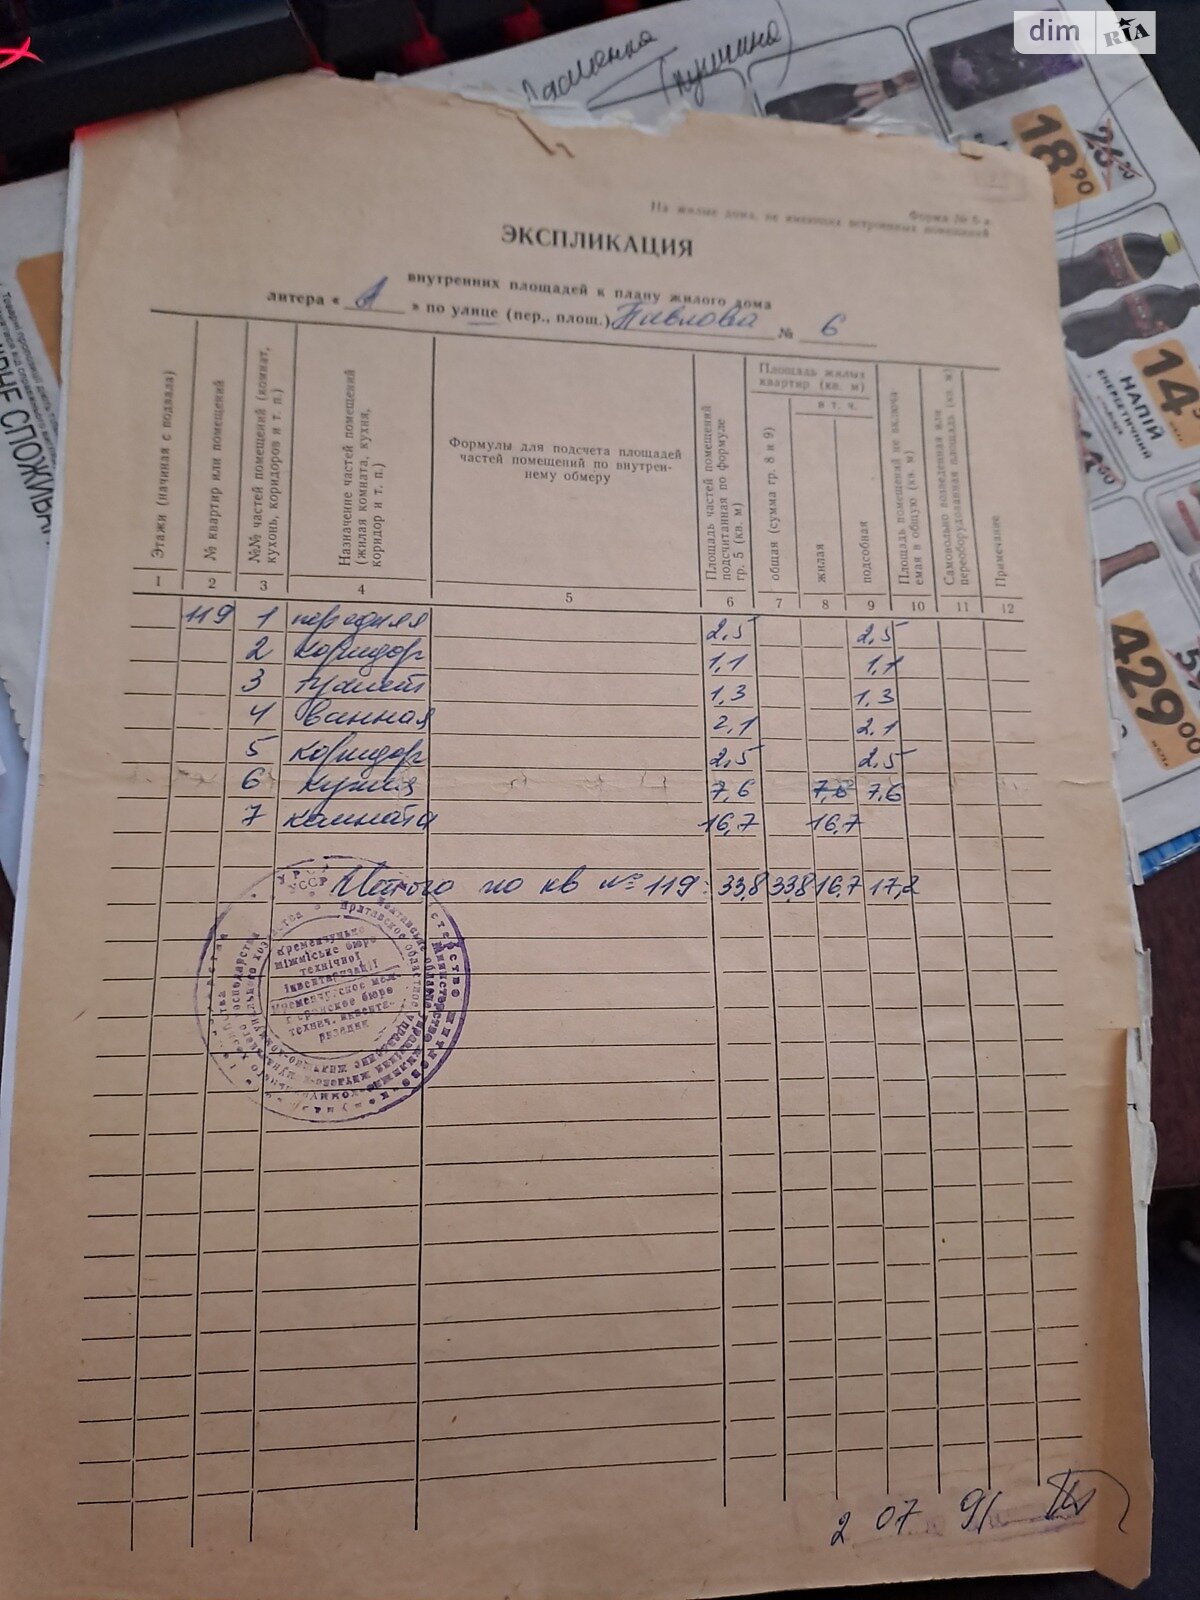 dim RIA
18 90
26
14
НАПІЙ
ЕНЕРГЕТИЧНИЙ
429 00
Форма № 6-а
На жилые дома, не имеющих встроенных помещений
ЭКСПЛИКАЦИЯ
внутренних площадей к плану жилого дома
литера « А » по улице (пер., площ.) Павлова № 6
Этажи (начиная с подвала)
№ квартир или помещений
№№ частей помещений (комнат, кухонь, коридоров и т. п.)
Назначение частей помещений (жилая комната, кухня, коридор и т. п.)
Формулы для подсчета площадей
частей помещений по внутрен-
нему обмеру
Площадь частей помещений подсчитанная по формуле гр. 5 (кв. м)
Площадь жилых
квартир (кв. м)
общая (сумма гр. 8 и 9)
в т. ч.
жилая
подсобная
Площадь помещений не включа-
емая в общую (кв. м)
Самовольно возведенная или
переоборудованная площадь (кв. м)
Примечание
1 2 3 4 5 6 7 8 9 10 11 12
119 1 передняя 2,5 2,5
2 коридор 1,1 1,1
3 туалет 1,3 1,3
4 ванная 2,1 2,1
5 коридор 2,5 2,5
6 кухня 7,6 7,6 7,6
7 комната 16,7 16,7
Итого по кв № 119: 33,8 33,8 16,7 17,2
УССР
Кременчуцьке
міжміське бюро
технічної
інвентаризації
Кременчугское меж-
городское бюро
технич. инвента-
ризации
2 07 91